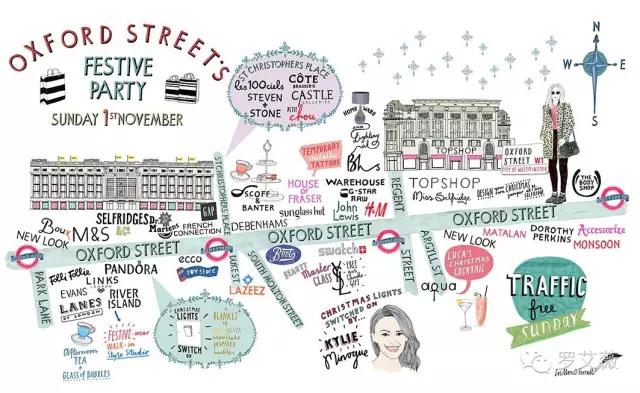 OXFORD STREET'S
FESTIVE
PARTY
SUNDAY 1ST NOVEMBER
ST CHRISTOPHERS PLACE
les 100 ciels
STEVEN
+
STONE
CÔTE
BRASSERIE
CASTLE
GALLERIES
PETIT
chou
HOME WARE
Lighting
Bhs
TEMPORARY
metallic
TATTOOS
N
W
E
S
TOPSHOP
OXFORD
STREET W1
CITY OF WESTMINSTER
TOPSHOP
Miss Selfridge
THE
BODY
SHOP
SCOFF
& BANTER
HOUSE
OF
FRASER
sunglass hut
WAREHOUSE
G-STAR
RAW
John
Lewis
H&M
DEBENHAMS
SELFRIDGES
M&S
Dr.
Martens
GAP
FRENCH
CONNECTION
NEW LOOK
ST CHRISTOPHERS PLACE
REGENT
STREET
OXFORD STREET
OXFORD STREET
OXFORD STREET
NEW LOOK
MATALAN
DOROTHY
PERKINS
Accessorize
MONSOON
PARK LANE
Folli Follie
PANDORA
LINKS
EVANS
LANES
OF LONDON
RIVER
ISLAND
ecco
TOY STORE
DUKE ST
LAZEEZ
SOUTH MOLTON STREET
Boots
BEAUTY
swatch
Master
CLASS
YSL
ARGYLL ST
aqua
LUCA'S
CHRISTMAS
COCKTAIL
afternoon
TEA
+
GLASS of BUBBLES
FESTIVE-wear
WALK-in
Style Studio
CHRISTMAS
LIGHTS
SWITCH
ON
BLANKET
OF
CHRISTMAS LIGHTS
SWITCHED ON
BY...
KYLIE
Minogue
TRAFFIC
free
sunday
罗艾薇